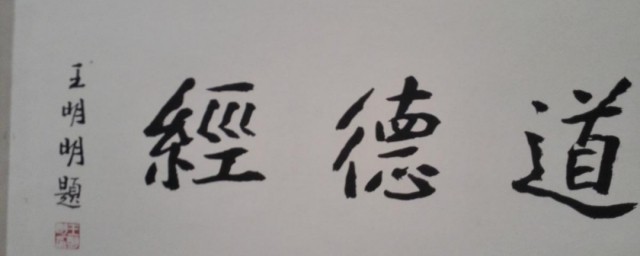 道德經
王明明題